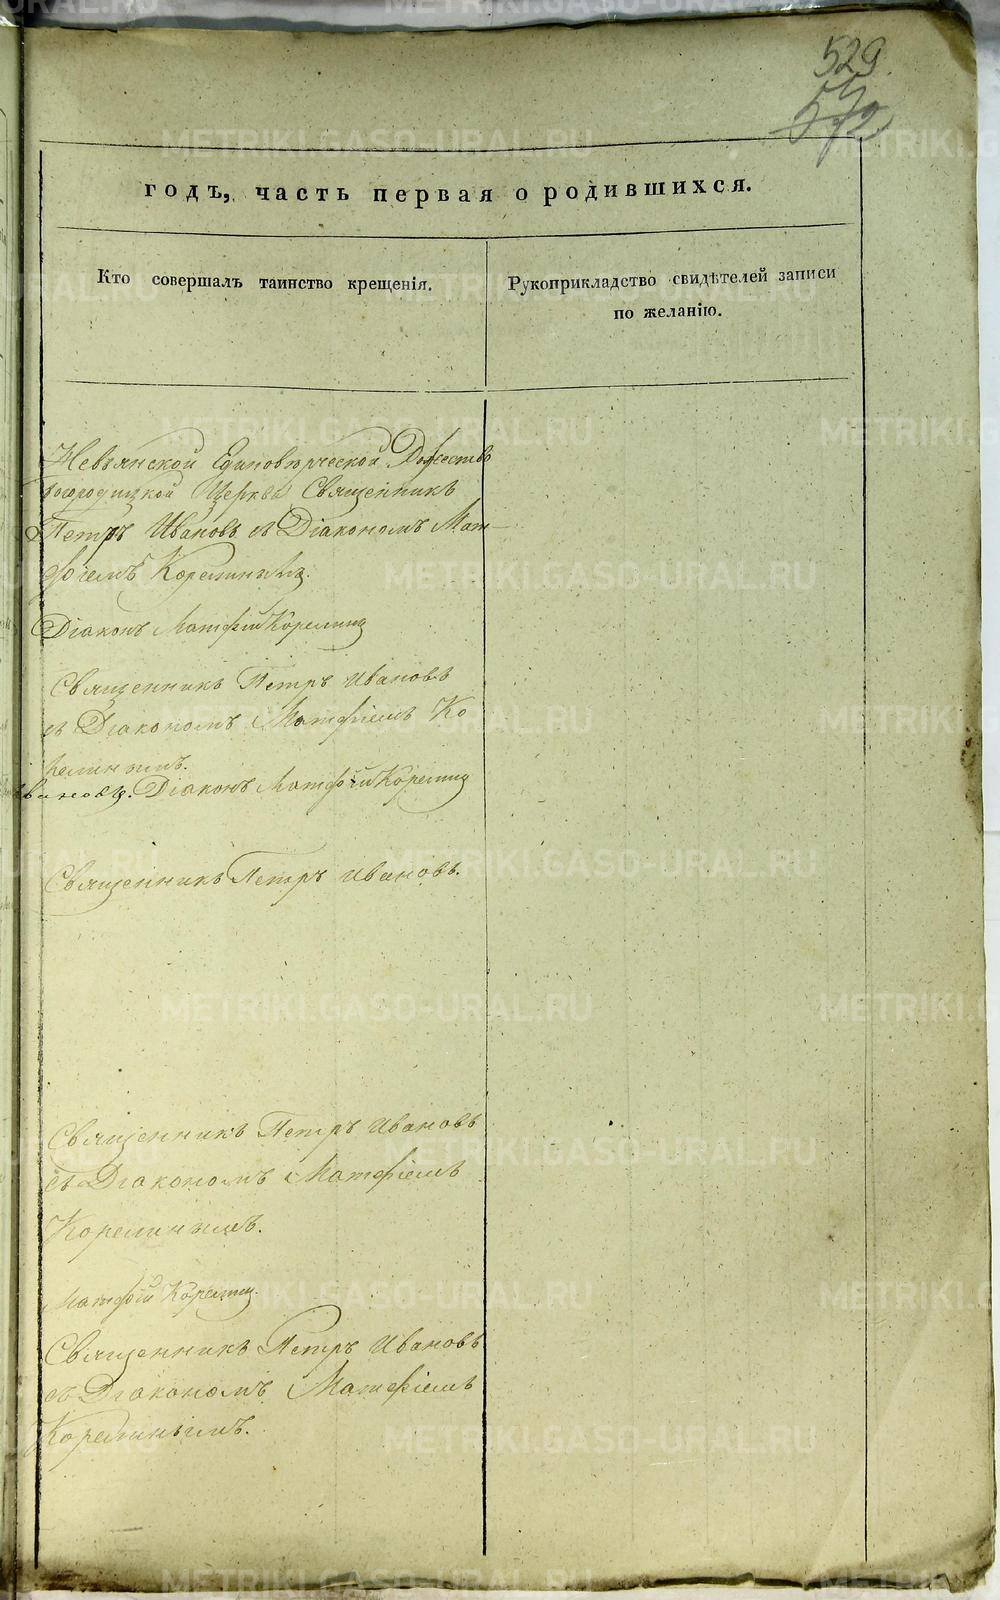 529
572
годъ, часть первая о родившихся.
Кто совершалъ таинство крещенія.
Рукоприкладство свидѣтелей записи
по желанію.
Невьянской Единовѣрческой Рожество
богородицкой Церкви Священникъ
Петръ Ивановъ съ Діакономъ Мат-
фіемъ Корелинымъ.
Діаконъ Матфій Корелинъ
Священникъ Петръ Ивановъ
съ Діакономъ Матфіемъ Ко
релинымъ.
Ивановъ. Діаконъ Матфій Корелинъ
Священникъ Петръ Ивановъ.
Священникъ Петръ Ивановъ
съ Діакономъ Матфіемъ
Корелинымъ.
Матфій Корелинъ.
Священникъ Петръ Ивановъ
съ Діакономъ Матфіемъ
Корелинымъ.
METRIKI.GASO-URAL.RU